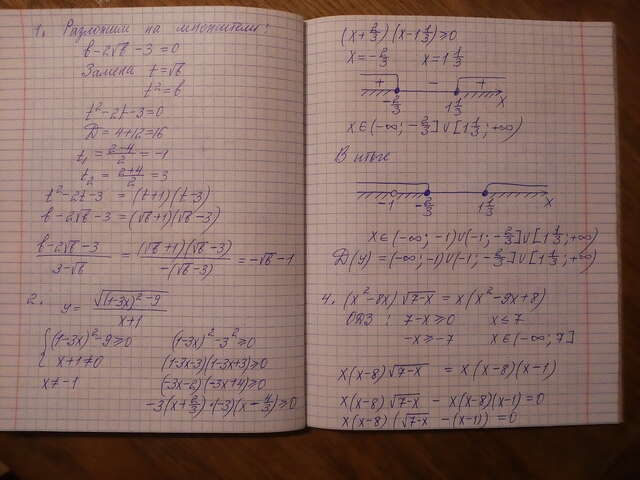 1. Разложим на множители:
b-2√b-3=0
Замена t=√b
t²=b
t²-2t-3=0
D=4+12=16
t₁ = (2-4)/2 = -1
t₂ = (2+4)/2 = 3
t²-2t-3 = (t+1)(t-3)
b-2√b-3 = (√b+1)(√b-3)
(b-2√b-3)/(3-√b) = ((√b+1)(√b-3))/(-(√b-3)) = -√b-1
2. y = √((1-3x)²-9)/(x+1)
{(1-3x)²-9≥0 (1-3x)²-3²≥0
x+1≠0 (1-3x-3)(1-3x+3)≥0
x≠-1 (-3x-2)(-3x+4)≥0
-3(x+2/3)·(-3)(x-4/3)≥0
(x+2/3)(x-1 1/3)≥0
x=-2/3 x=1 1/3
+ - +
-2/3 1 1/3 x
x∈(-∞; -2/3]∪[1 1/3; +∞)
В итоге
-1 -2/3 1 1/3 x
x∈(-∞; -1)∪(-1; -2/3]∪[1 1/3; +∞)
D(y) = (-∞; -1)∪(-1; -2/3]∪[1 1/3; +∞)
4. (x²-8x)√(7-x) = x(x²-9x+8)
ОДЗ: 7-x≥0 x≤7
-x≥-7 x∈(-∞; 7]
x(x-8)√(7-x) = x(x-8)(x-1)
x(x-8)√(7-x) - x(x-8)(x-1)=0
x(x-8)(√(7-x) -(x-1))=0